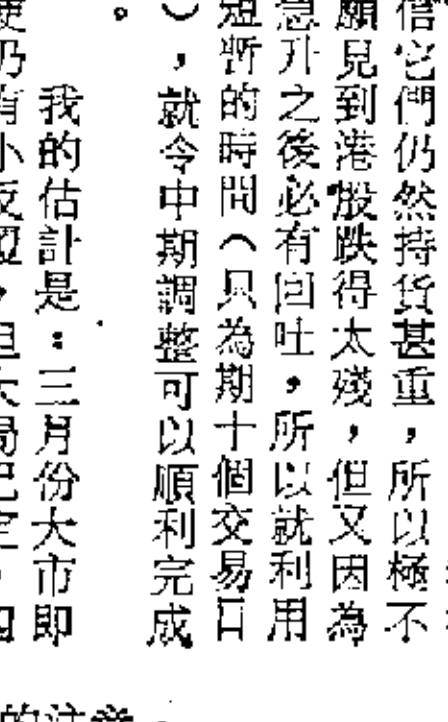 信它們仍然持貨甚重，所以極不
願見到港股跌得太殘，但又因為
急升之後必有回吐，所以就利用
短暫的時間（只為期十個交易日
），就令中期調整可以順利完成
。
我的估計是：三月份大市即
使仍有小反，但大局已定，四
的注意。